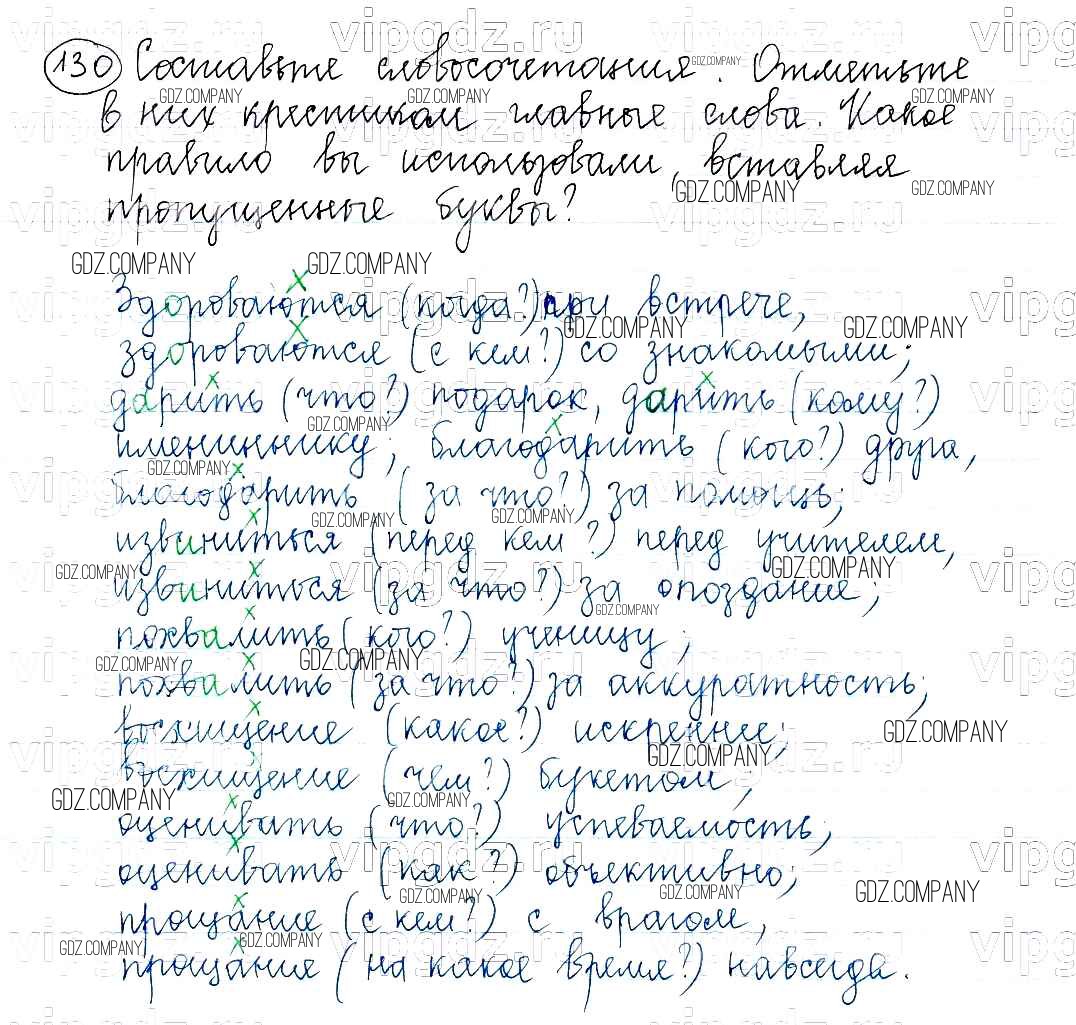 130 Составьте словосочетания. Отметьте
в них крестиком главные слова. Какое
правило вы использовали, вставляя
пропущенные буквы?
Здороваются (когда?) при встрече,
здороваются (с кем?) со знакомыми;
дарить (что?) подарок, дарить (кому?)
имениннику; благодарить (кого?) друга,
благодарить (за что?) за помощь;
извиниться (перед кем?) перед учителем,
извиниться (за что?) за опоздание;
похвалить (кого?) ученицу;
похвалить (за что?) за аккуратность;
восхищение (какое?) искреннее;
восхищение (чем?) букетом;
оценивать (что?) успеваемость;
оценивать (как?) объективно;
прощание (с кем?) с врагом,
прощание (на какое время?) навсегда.
vipgdz.ru
GDZ.COMPANY